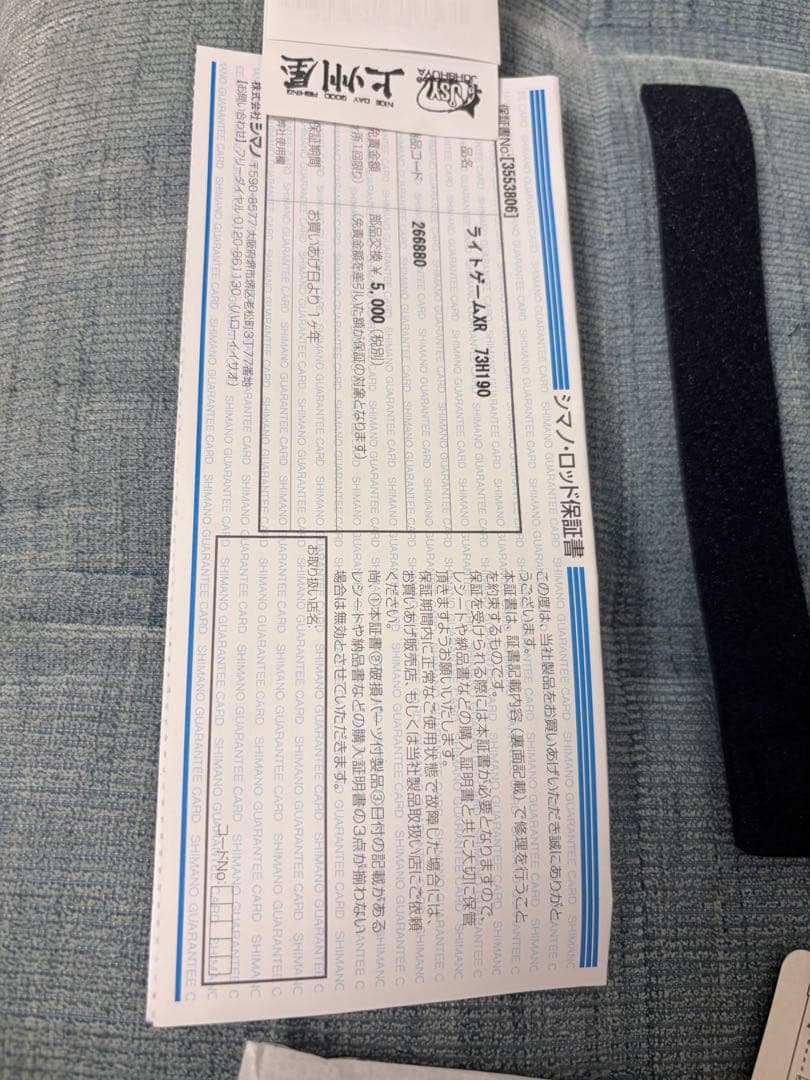 上州屋
NICE DAY GOOD FISHING
JSY
JOHSHUYA
シマノ・ロッド保証書
保証書No.[3553806]
品名 ライトゲームXR 73H190
品コード 266880
免責金額 部品交換 ¥5,000(税別)
所1回限り) (免責金額を差引いた額が保証の対象となります)
保証期間 お買いあげ日より 1ヶ年
弊社使用欄
株式会社シマノ 〒590-8577 大阪府堺市堺区老松町3丁77番地
【お問い合わせ】フリーダイヤル 0120-861130 (ハローイイサオ)
この度は、当社製品をお買いあげいただき誠にありがと
うございます。
本証書は、証書記載内容(裏面記載)で修理を行うこと
を約束するものです。
保証を受けられる際には本証書が必要となりますので、
レシートや納品書などの購入証明書と共に大切に保管
頂きますようお願いいたします。
保証期間内に正常なご使用状態で故障した場合には、
お買いあげ販売店 もしくは当社製品取扱い店にご依頼
ください。
尚、①本証書②破損パーツ付製品③日付の記載がある
レシートや納品書などの購入証明書の3点が揃わない
場合は無効とさせていただきます。
お取り扱い店名
コードNo.
SHIMANO GUARANTEE CARD